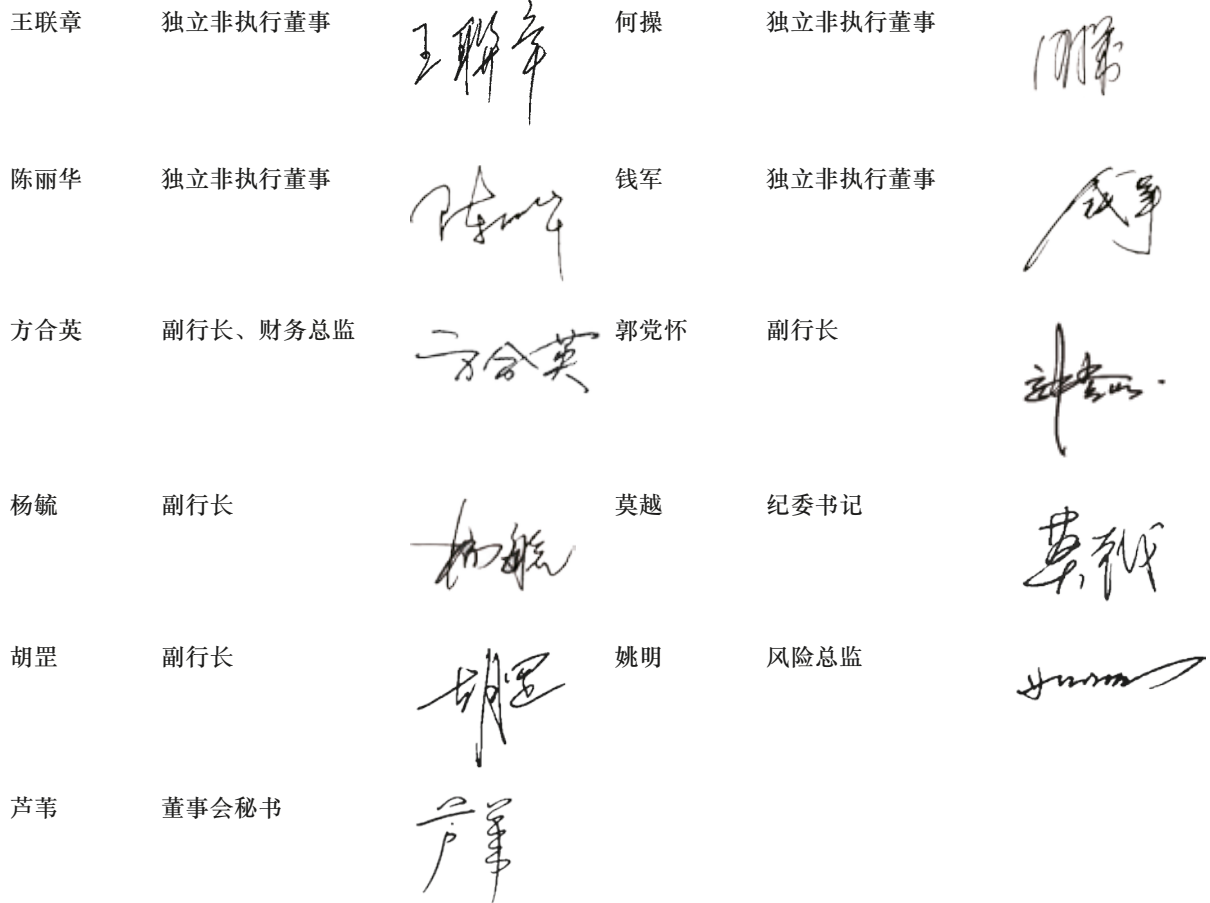 王联章 独立非执行董事 王聯章 何操 独立非执行董事
陈丽华 独立非执行董事 钱军 独立非执行董事
方合英 副行长、财务总监 方合英 郭党怀 副行长
杨毓 副行长 杨毓 莫越 纪委书记
胡罡 副行长 胡罡 姚明 风险总监
芦苇 董事会秘书 芦苇